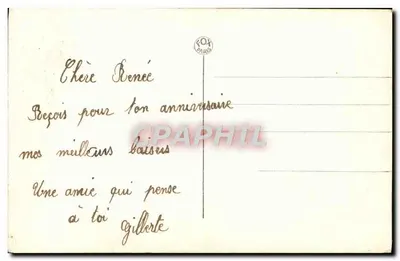 Chère Renée
Reçois pour ton anniversaire
mes meilleurs baisers
Une amie qui pense
à toi
Gilberte
FOX
PARIS
delcampe